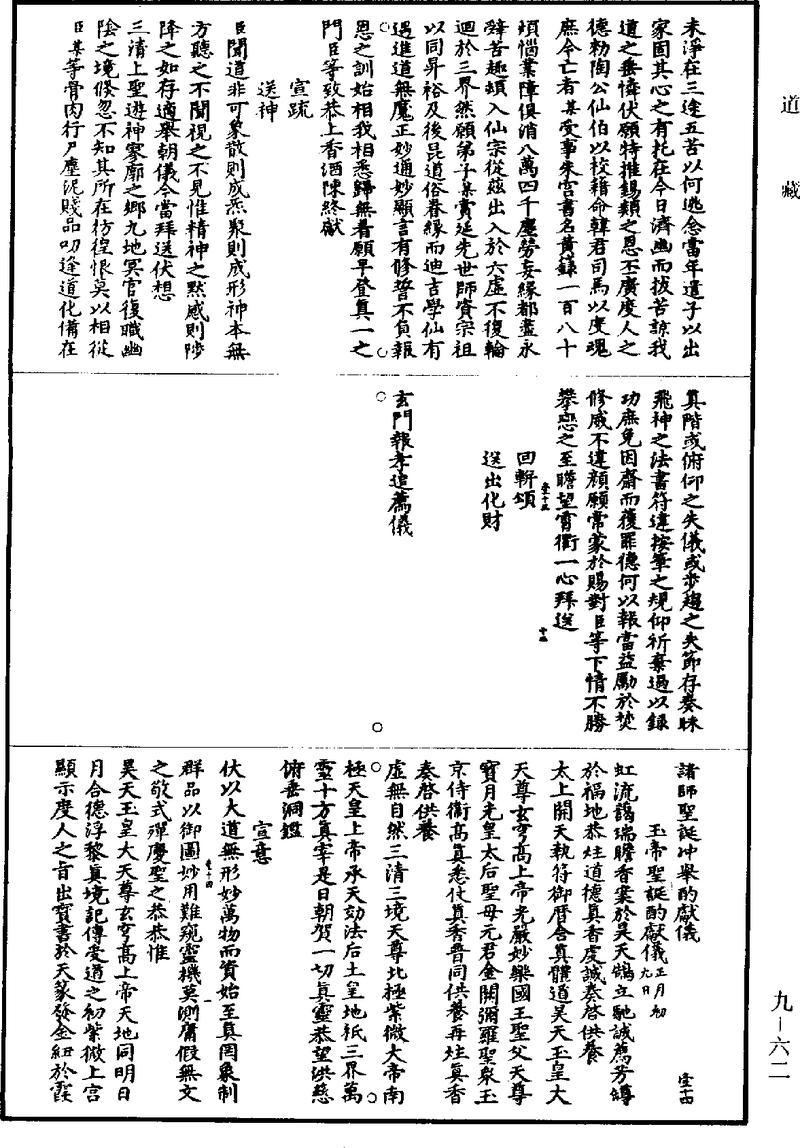 道藏
未淨在三途五苦以何逃念當年遺子以出
家固其心之有托在今日濟幽而拔苦諒我
道之垂憐伏願特推錫類之恩丕廣度人之
德勑陶公仙伯以校籍命韓君司馬以度魂
庶今亡者某受事朱宮書名黃籙一百八十
煩惱業障俱消八萬四千塵勞妄緣都盡永
辭苦趣頓入仙宗從茲出入於六虛不復輪
迴於三界然願弟子某賞延先世師資宗祖
以同昇裕及後昆道俗眷緣而迪吉學仙有
遇進道無魔正妙通妙顯言有修誓不負報
恩之訓始相我相悉歸無着願早登真一之
門臣等致恭上香酒陳終獻
宣疏
送神
臣聞道非可象散則成炁聚則成形神本無
方聽之不聞視之不見惟精神之默感則陟
降之如存適舉朝儀今當拜送伏想
三清上聖遊神寥廓之鄉九地冥官復職幽
陰之境倏忽不知其所在彷徨恨莫以相從
臣某等骨肉行尸塵泥賤品叨逢道化備在
真階或俯仰之失儀或步趨之失節存奏昧
飛神之法書符違按筆之規仰祈棄過以錄
功庶免因齋而獲罪德何以報當益勵於焚
修威不違顏願常蒙於賜對臣等下情不勝
攀戀之至瞻望霄衢一心拜送
回軿頌
送出化財
玄門報孝追薦儀
諸師聖誕冲舉酌獻儀
玉帝聖誕酌獻儀正月初九日
虹流謁瑞瞻香案於昊天鶴立馳誠薦芳罇
於福地恭炷道德真香虔誠奏啓供養
太上開天執符御曆含真體道昊天玉皇大
天尊玄穹高上帝光嚴妙樂國王聖父天尊
寶月光皇太后聖母元君金闕彌羅聖衆玉
京侍衛高真悉仗真香普同供養再炷真香
奏啓供養
虛無自然三清三境天尊北極紫微大帝南
極天皇上帝承天効法后土皇地祇三界萬
靈十方真宰是日朝賀一切真靈恭望洪慈
俯垂洞鑑
宣意
伏以大道無形妙萬物而資始至真罔象制
群品以御圖妙用難窺靈機莫測庸假無文
之敬式殫慶聖之恭恭惟
昊天玉皇大天尊玄穹高上帝天地同明日
月合德浮黎真境記傳受道之初紫微上宮
顯示度人之旨出寶書於天篆發金紐於霞
九－六二